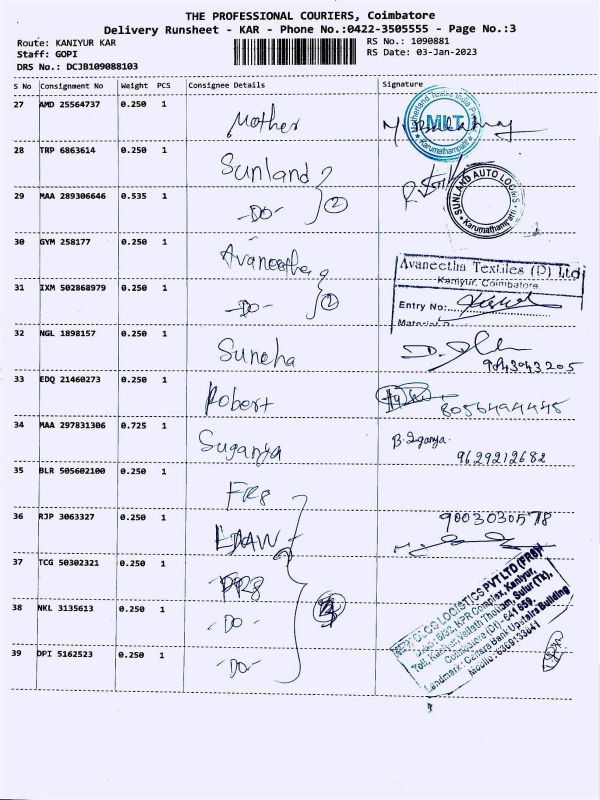 THE PROFESSIONAL COURIERS, Coimbatore
Delivery Runsheet - KAR - Phone No.:0422-3505555 - Page No.:3
Route: KANIYUR KAR
Staff: GOPI
DRS No.: DCJB109088103
RS No.: 1090881
RS Date: 03-Jan-2023
S No Consignment No Weight PCS Consignee Details Signature
27 AMD 25564737 0.250 1 Mother
MLT
Karumathampatti
28 TRP 6863614 0.250 1 Sunland
29 MAA 289306646 0.535 1 -DO- 2
SUNLAND AUTO LOOMS
Karumathampatti
30 GYM 258177 0.250 1 Avaneetha
Avaneetha Textiles (P) Ltd
Kaniyur, Coimbatore
31 IXM 502868979 0.250 1 -DO- 2
Entry No:
32 NGL 1898157 0.250 1 Suneha
9843043205
33 EDQ 21460273 0.250 1 Robert
8056494445
34 MAA 297831306 0.725 1 Suganya
9629212682
35 BLR 505602100 0.250 1 FR8
36 RJP 3063327 0.250 1
9003030578
37 TCG 50302321 0.250 1 FR8
38 NKL 3135613 0.250 1 -DO-
39 DPI 5162523 0.250 1 -DO-
LOGISTICS PVT LTD (FR8)
KPR Complex, Kaniyur,
Thottam, Sulur (Tk),
Coimbatore (Dt) - 641 659.
Landmark: Canara Bank Upstairs Building